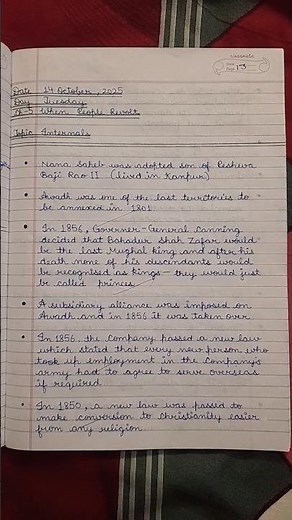 Page 13
Date 14 October, 2025
Day Tuesday
Ch-5 When People Revolt
Topic Internals
• Nana Saheb was adopted son of Peshwa
Baji Rao II (lived in Kanpur)
• Awadh was one of the last territories to
be annexed in 1801
• In 1856, Governer-General Canning
decided that Bahadur Shah Zafar would
be the last Mughal king and after his
death none of his descendants would
be recognised as kings - they would just
be called princes
• A subsidiary alliance was imposed on
Awadh and in 1856 it was taken over
• In 1856, the Company passed a new law
which stated that every new person who
took up employment in the Company's
army had to agree to serve overseas
if required
• In 1850, a new law was passed to
make conversion to Christianity easier
from any religion